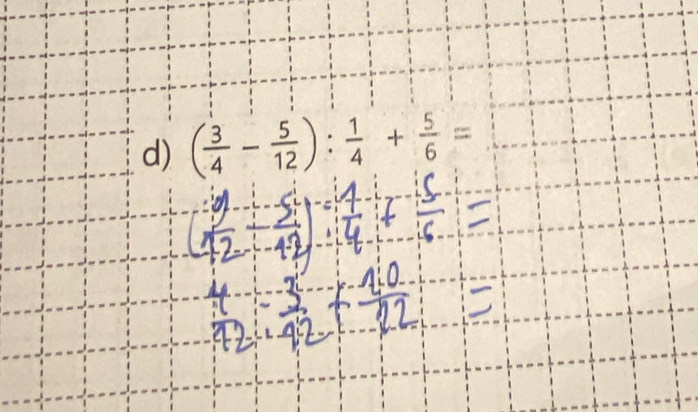 d) (3/4 - 5/12) : 1/4 + 5/6 =
(9/12 - 5/12) : 1/4 + 5/6 =
4/12 : 3/12 + 10/12 =